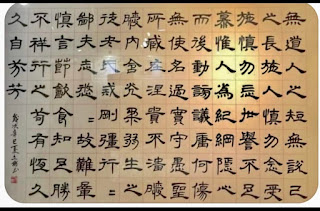 無道人之短無說己
之長施人慎勿念受
施慎勿忘世譽不足
慕惟仁為紀綱隱心
而後動謗議庸何傷
無使名過實守愚聖
所臧在涅貴不淄曖
曖內含光柔弱生之
徒老氏誡剛彊行〻
鄙夫志悠〻故難量
慎言節飲食知足勝
不祥行之苟有恆久
久自芬芳